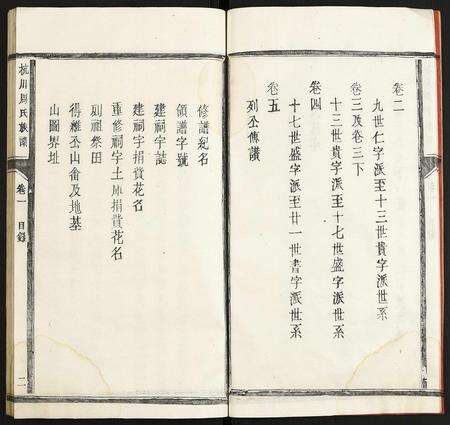 卷二
九世仁字派至十三世貴字派世系
卷三及卷三下
十三世貴字派至十七世盛字派世系
卷四
十七世盛字派至廿一世書字派世系
卷五
列公傳讚
修譜紀名
領譜字號
建祠字誌
建祠字捐貲花名
重修祠字土庫捐貲花名
列祖祭田
得離丕山畲及地基
山圖界址
杭川周氏族譜
卷一
目錄
二